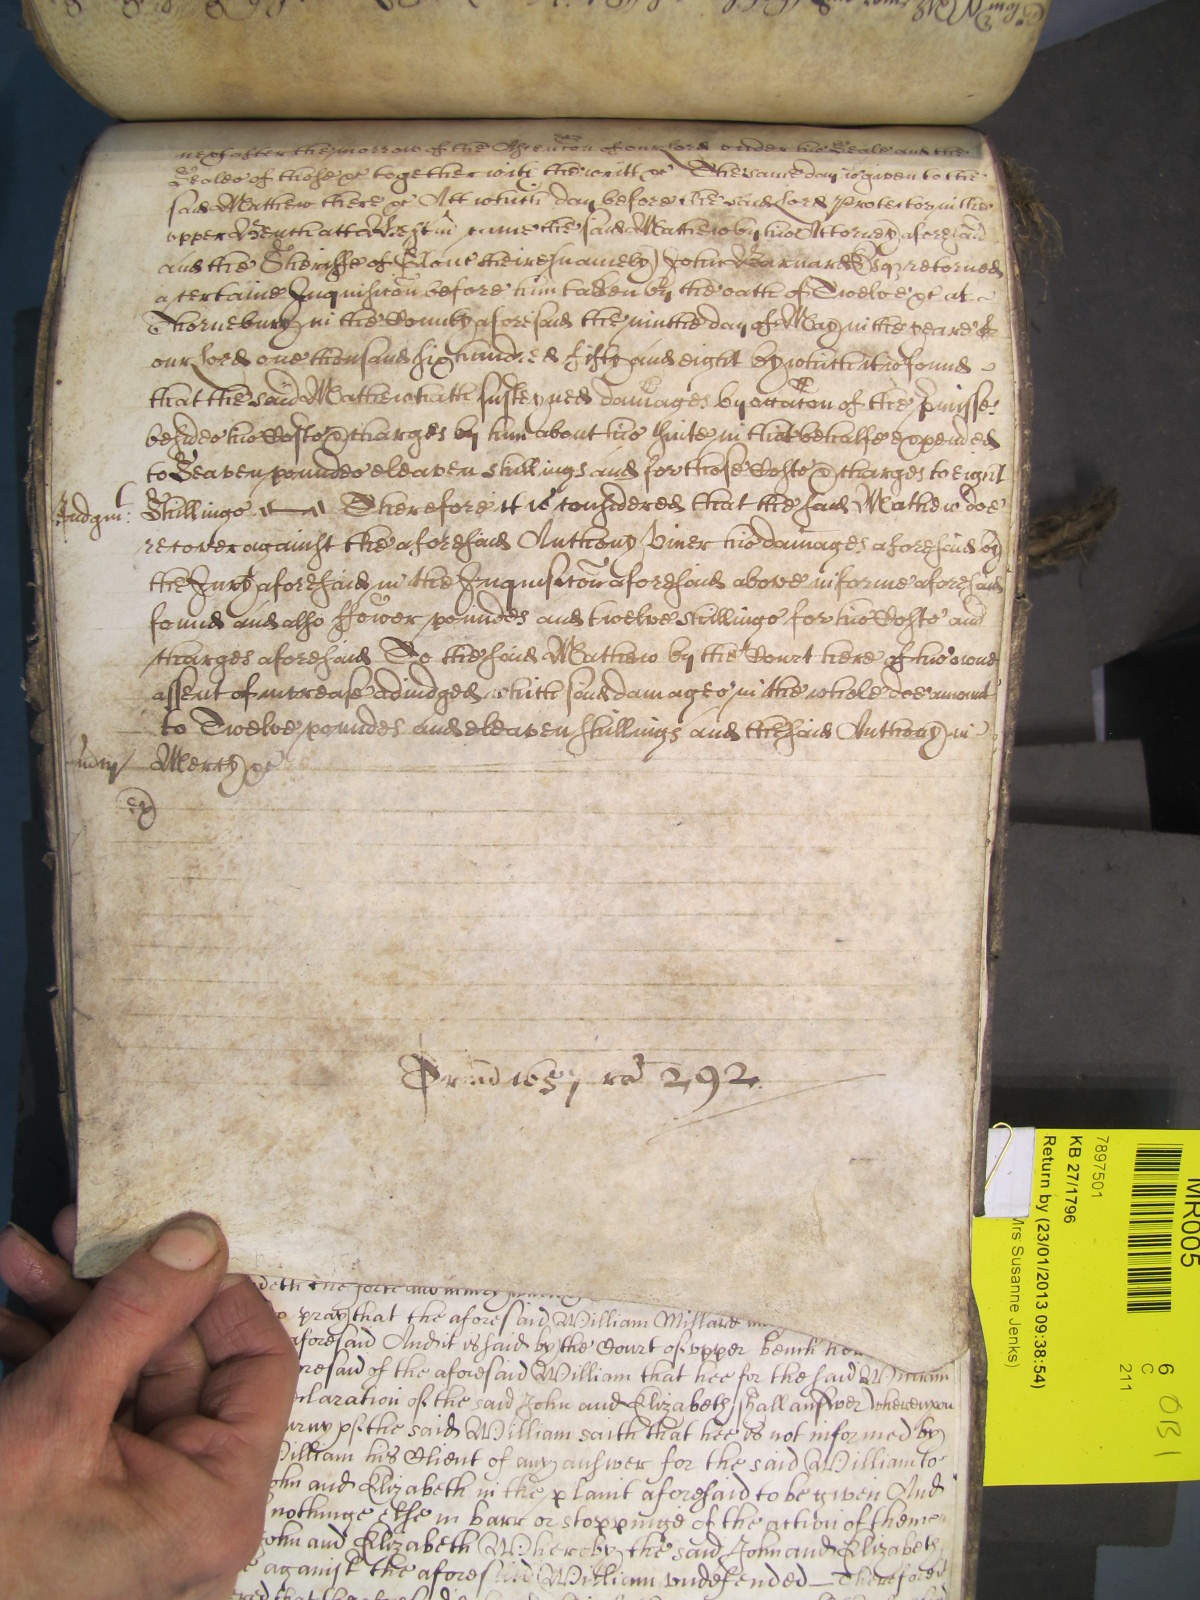 next after the morrow of the Ascencion of our Lord under the Seale and the
Seales of those &c together with the writt &c The same day is given to the
said Mathew there &c Att which day before the said Lord Protector in the
upper Bench att Westm came the said Mathew by his Attorney aforesaid
and the Sheriffe of Glouc there (namely) John Barnard Esq returned
a certaine Inquisicon before him taken by the oath of Twelve &c at
Thornebury in the County aforesaid the ninth day of May in the yeare of
our Lord one thousand six hundred fifty and eight by which it is found
that the said Mathew hath susteyned damages by occacon of the p'misses
besides his Costs & charges by him about his suite in that behalfe expended
to Seaven poundes eleaven shillings and for those Costs & charges to eight
Judgmt: Shillings Therefore it is considered that the said Mathew doe
recover against the aforesaid Anthony Viner his damages aforesaid by
the Jury aforesaid in the Inquisicon aforesaid above in forme aforesaid
found and also ffower poundes and twelve shillings for his Costs and
charges aforesaid To the said Mathew by the Court here of his owne
assent of increase adiudged which said damages in the whole doe amount
to Twelve poundes and eleaven shillings and the said Anthony in
Mercy &c
Trin 1657 ro 292
pray that the aforesaid William Millard
aforesaid And it is said by the Court of upper bench
of the aforesaid William that hee for the said William
of the said John and Elizabeth shall answer thereupon
of the said William saith that hee is not informed by
William his Client of any answer for the said William to
John and Elizabeth in the plaint aforesaid to be given And
nothinge else in barr or stoppinge of the action of them
John and Elizabeth Whereby the said John and Elizabeth
against the aforesaid William undefended Therefore
MR005
6
C
211
7897501
KB 27/1796
Return by (23/01/2013 09:38:54)
Mrs Susanne Jenks)